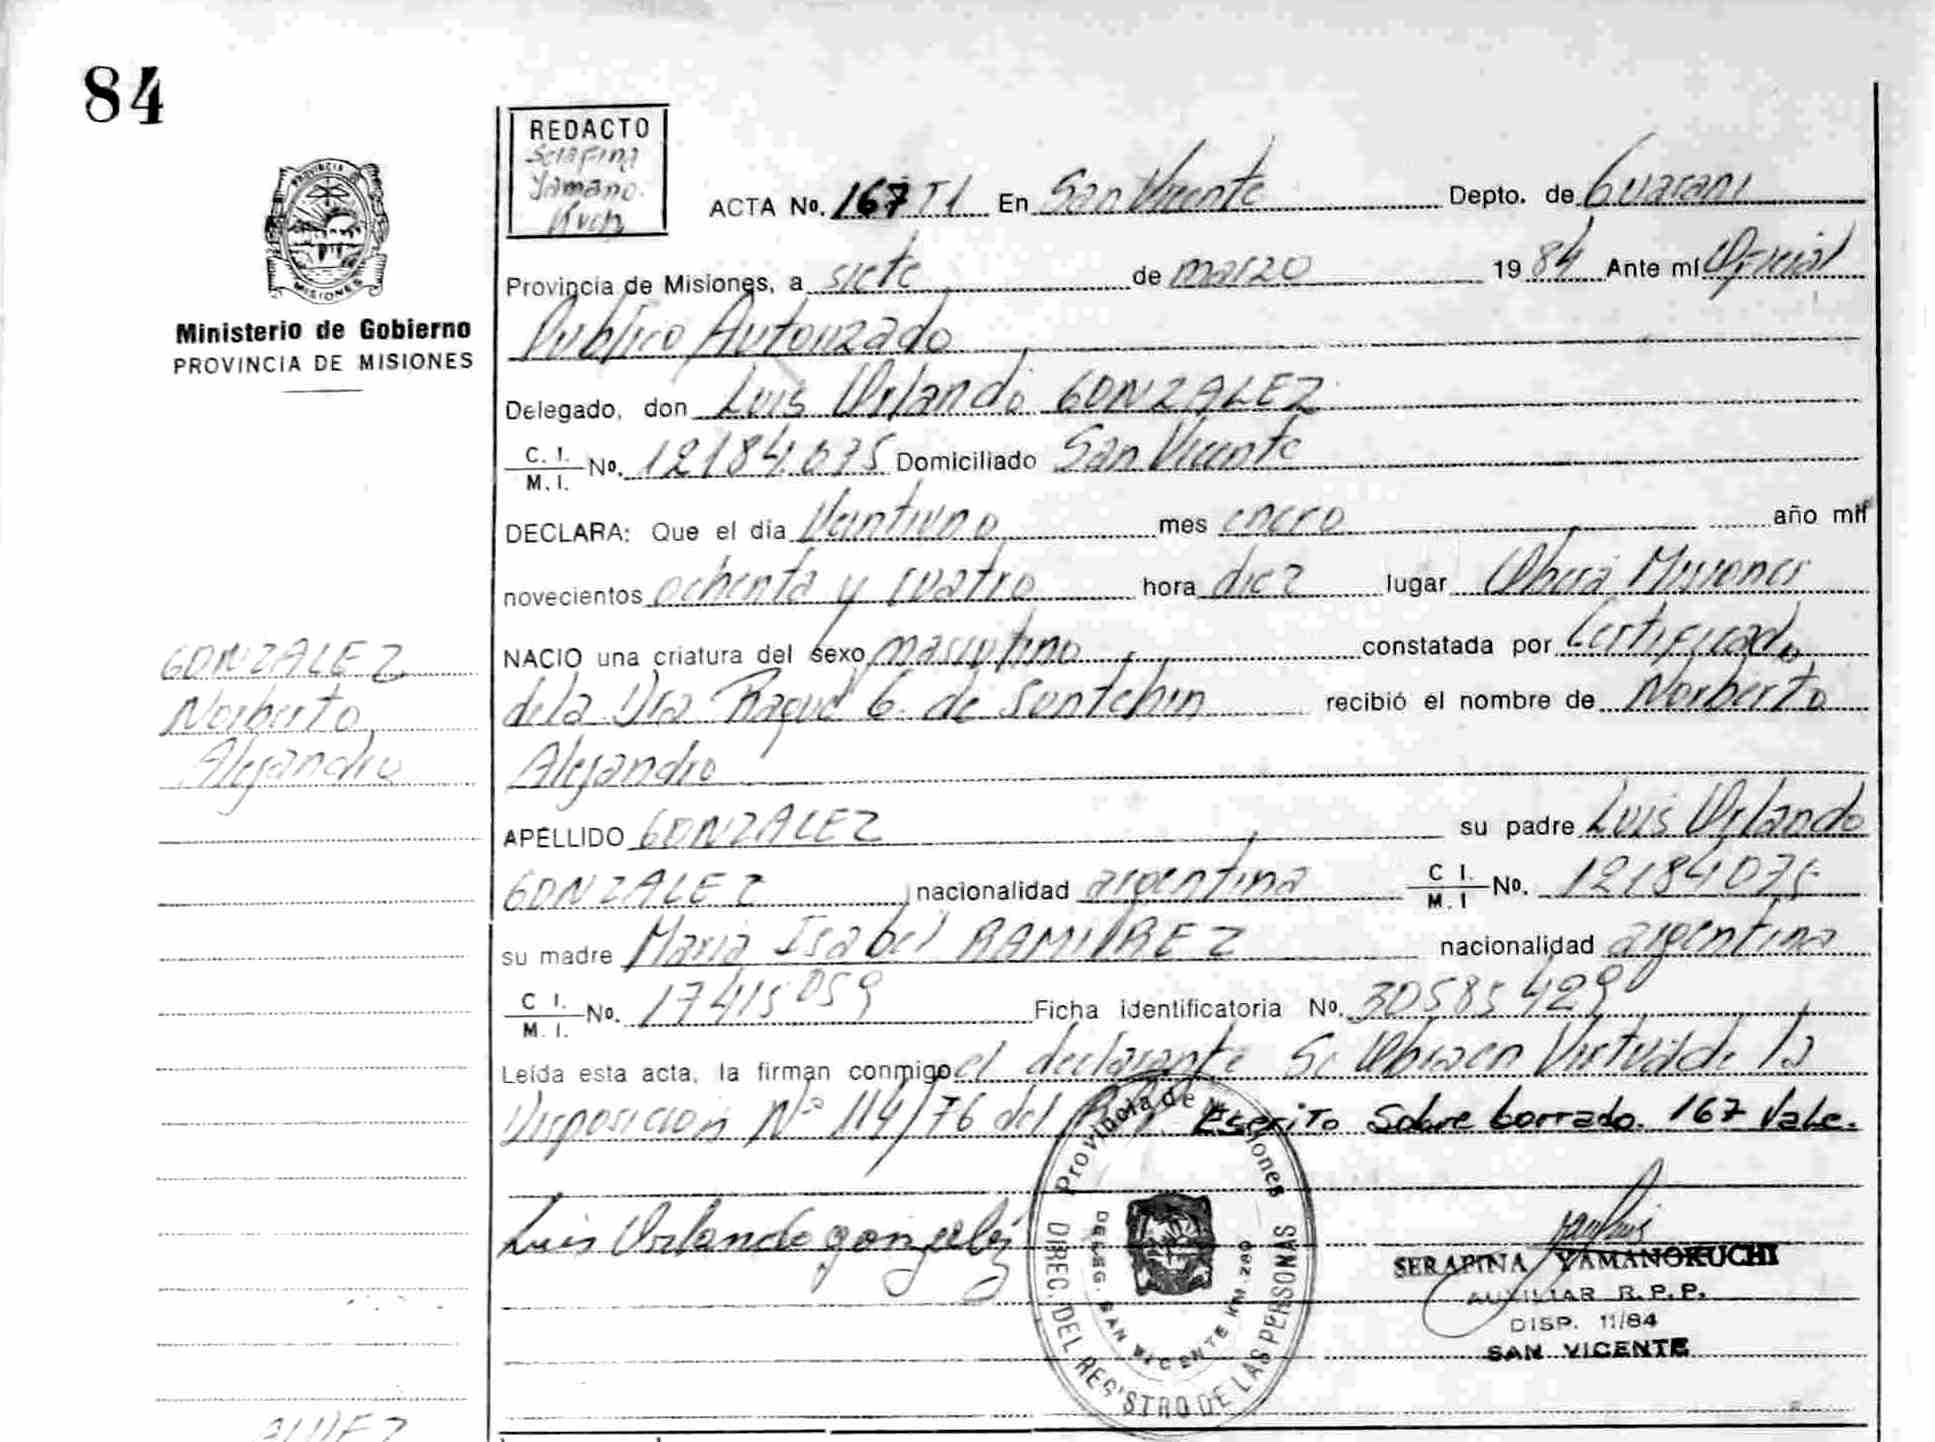 84
REDACTO
Serafina
Yamano.
Kuch
ACTA No. 167 T1 En San Vicente Depto. de Guarani
PROVINCIA
MISIONES
Ministerio de Gobierno
PROVINCIA DE MISIONES
Provincia de Misiones, a siete de marzo 1984 Ante mí Oficial
Publico Autorizado
Delegado, don Luis Orlando GONZALEZ
C. I.
M. I. No. 12184.075 Domiciliado San Vicente
DECLARA: Que el día Veintiuno mes enero año mil
novecientos ochenta y cuatro hora diez lugar Oberá Misiones
NACIO una criatura del sexo masculino constatada por Certificado
de la Dra Raquel G. de recibió el nombre de Norberto
Alejandro
GONZALEZ
Norberto
Alejandro
APELLIDO GONZALEZ su padre Luis Orlando
GONZALEZ nacionalidad argentina C I.
M. I No. 12184075
su madre Maria Isabel RAMIREZ nacionalidad argentina
C I.
M. I. No. 17415059 Ficha identificatoria No. 30585429
Leída esta acta, la firman conmigo el declarante Se Obra en Virtud de la
Disposicion Nº 114/76 del Escrito Sobre borrado. 167 Vale.
Luis Orlando gonzalez
Provincia de Misiones
DIREC. DEL REGISTRO DE LAS PERSONAS
DELEG. SAN VICENTE KM. 280
SERAFINA YAMANOKUCHI
AUXILIAR R. P. P.
DISP. 11/84
SAN VICENTE